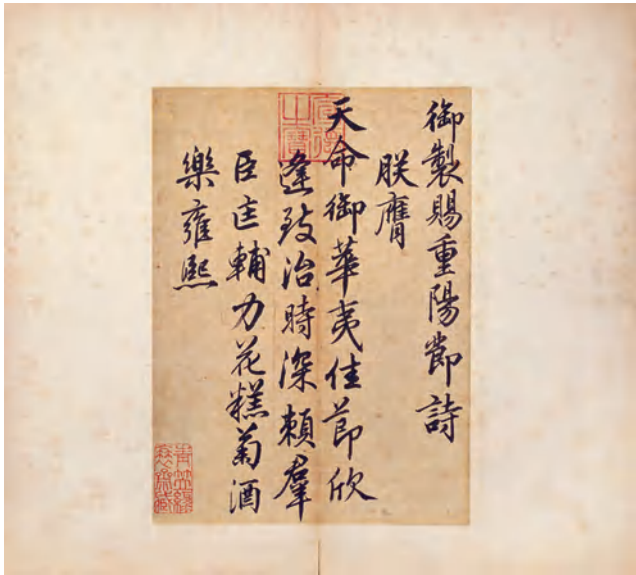 御製賜重陽節詩
朕膺
天命御華夷佳節欣
逢致治時深賴羣
臣匡輔力花糕菊酒
樂雍熙